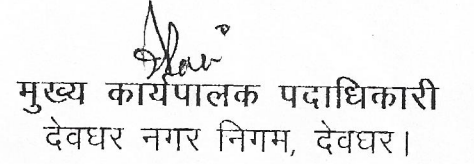 मुख्य कार्यपालक पदाधिकारी
देवघर नगर निगम, देवघर।